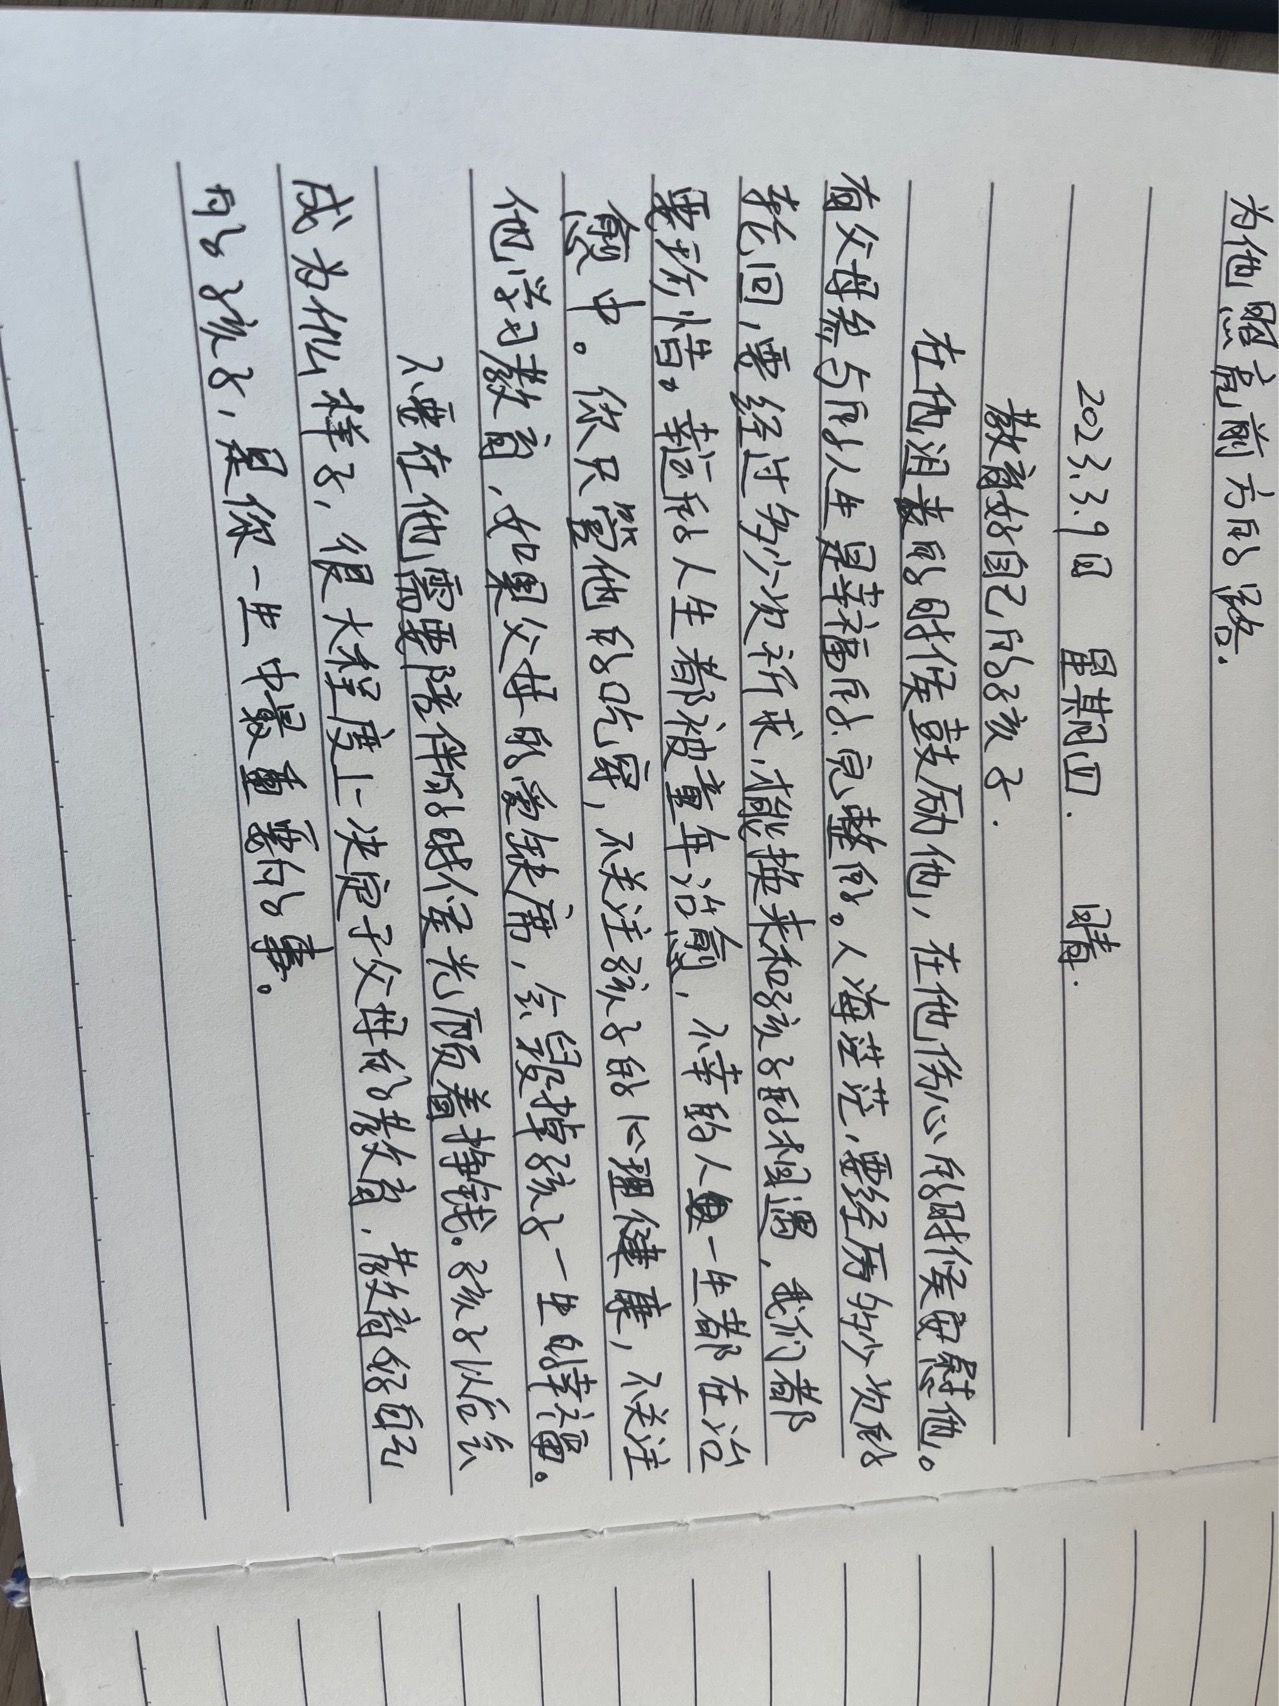 为他照亮前方的路.
2023.3.9日 星期四. 晴.
教育好自己的孩子.
在他沮丧的时候鼓励他，在他伤心的时候安慰他。
有父母参与的人生是幸福的、完整的。人海茫茫，要经历多少次的
轮回，要经过多少次祈求，才能换来和孩子的相遇，我们都
要珍惜。幸运的人生都被童年治愈，不幸的人一生都在治
愈中。你只管他的吃穿，不关注孩子的心理健康，不关注
他学习教育，如果父母的爱缺席，会毁掉孩子一生的幸福。
不要在他需要陪伴的时候光顾着挣钱。孩子以后会
成为什么样子，很大程度上决定于父母的教育，教育好自己
的孩子，是你一生中最重要的事。